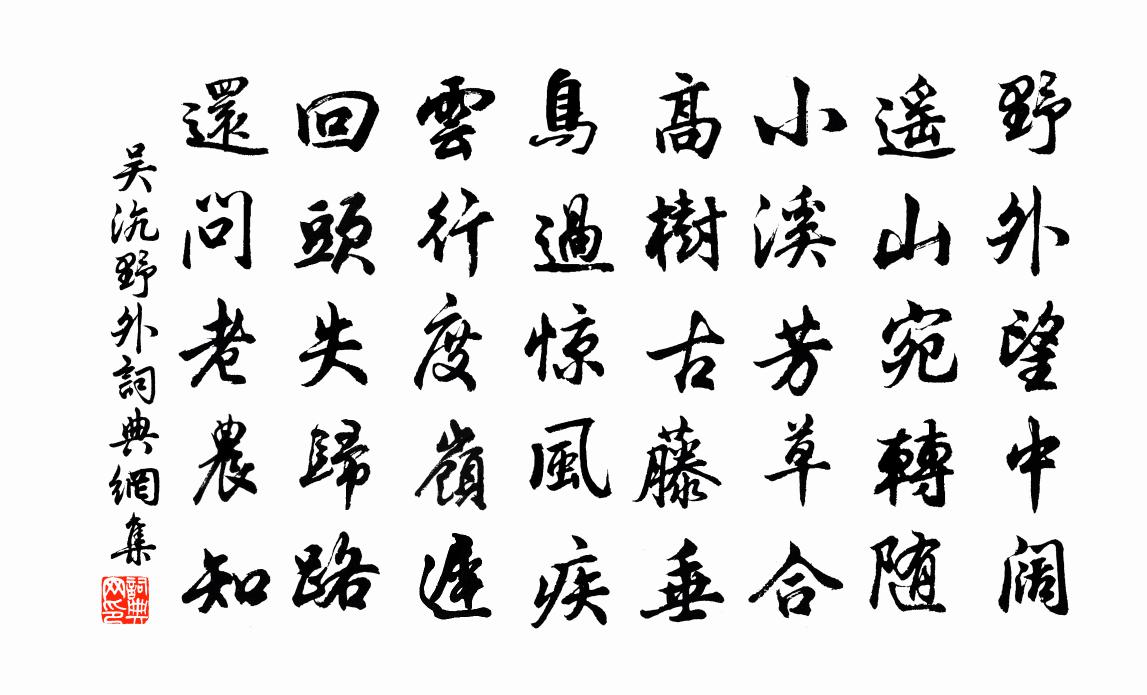 野外望中阔
遥山宛轉随
小溪芳草合
高樹古藤垂
鳥過惊風疾
雲行度嶺遲
回頭失歸路
還問老農知
吴沉野外詞典網集
詞典網印